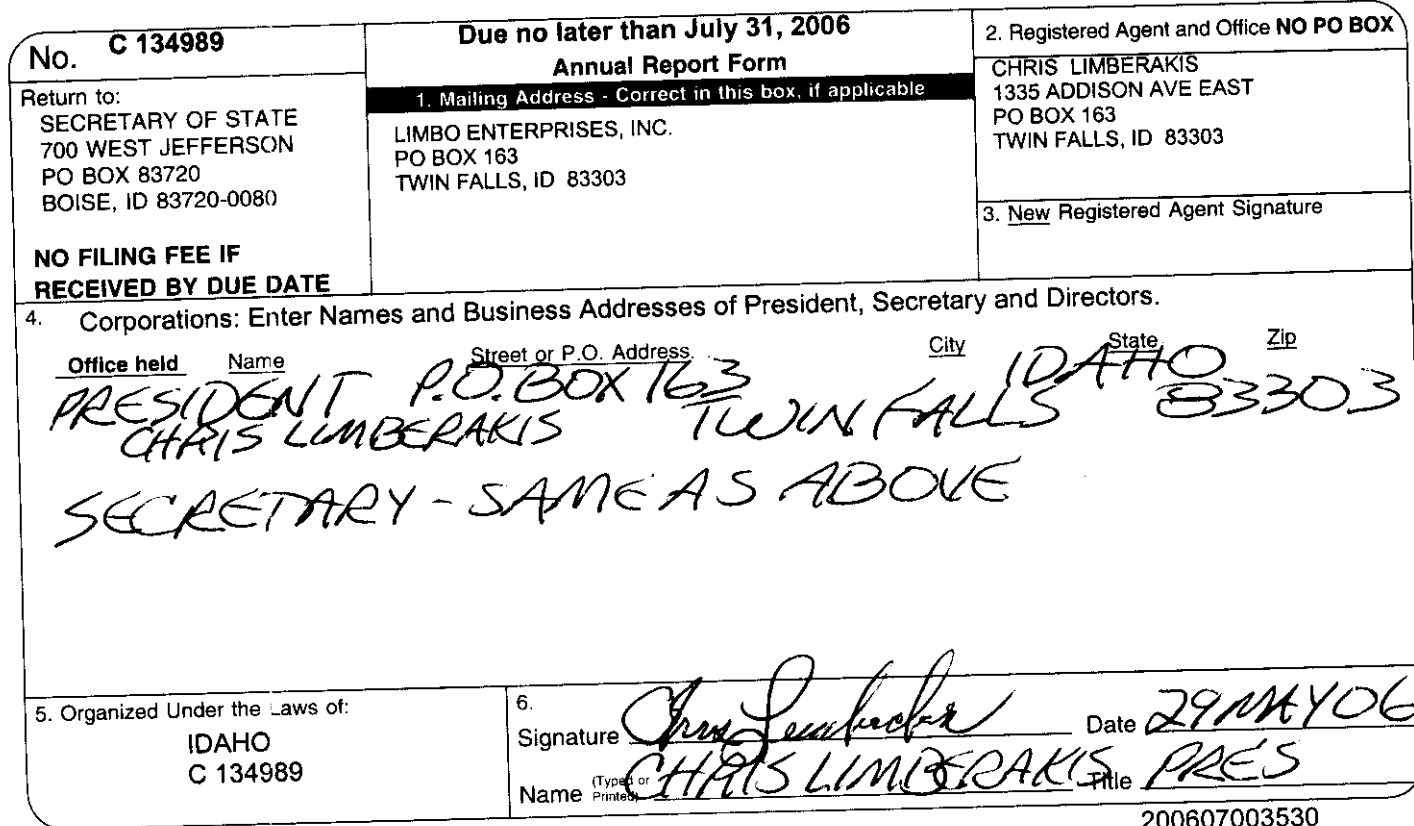 No. C 134989
Return to:
SECRETARY OF STATE
700 WEST JEFFERSON
PO BOX 83720
BOISE, ID 83720-0080
NO FILING FEE IF
RECEIVED BY DUE DATE
Due no later than July 31, 2006
Annual Report Form
1. Mailing Address - Correct in this box, if applicable
LIMBO ENTERPRISES, INC.
PO BOX 163
TWIN FALLS, ID 83303
2. Registered Agent and Office NO PO BOX
CHRIS LIMBERAKIS
1335 ADDISON AVE EAST
PO BOX 163
TWIN FALLS, ID 83303
3. New Registered Agent Signature
4. Corporations: Enter Names and Business Addresses of President, Secretary and Directors.
Office held Name Street or P.O. Address City State Zip
PRESIDENT P.O. BOX 163 IDAHO
CHRIS LIMBERAKIS TWIN FALLS 83303
SECRETARY - SAME AS ABOVE
5. Organized Under the Laws of:
IDAHO
C 134989
6.
Signature Chris Limberakis Date 29 MAY 06
Name (Typed or Printed) CHRIS LIMBERAKIS Title PRES
200607003530